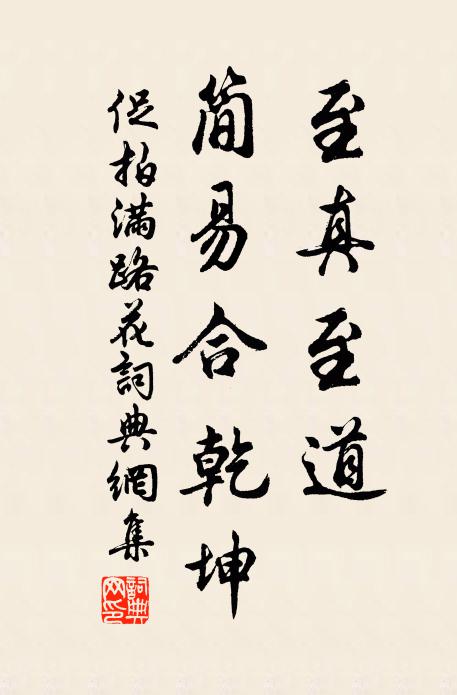 至真至道
简易合乾坤
促拍满路花詞典網集
詞典网印